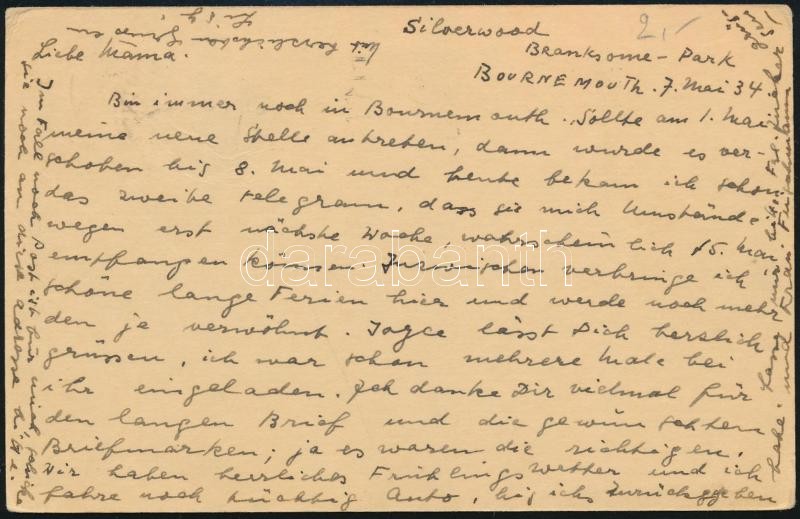 2,-
Silverwood
Branksome-Park
Bournemouth. 7. Mai 34.
Liebe Mama.
Bin immer noch in Bournemouth. Sollte am 1. Mai
meine neue Stelle antreten, dann wurde es ver-
schoben bis 8. Mai und heute bekam ich schon
das zweite telegram, dass sie mich Umstände
wegen erst nächste Woche, wahrscheinlich 15. Mai,
empfangen können. Inzwischen verbringe ich
schöne lange Ferien hier und werde noch mehr
den je verwöhnt. Joyce lässt Dich herzlich
grüssen, ich war schon mehrere Male bei
ihr eingeladen. Ich danke Dir vielmal für
den langen Brief und die gewünschten
Briefmarken; ja es waren die richtigen.
Wir haben herrliches Frühlingswetter und ich
fahre noch tüchtig Auto, bis ichs zurückgeben
Im Fall noch Post ist für mich schicke
sie noch an diese adresse.
habe.
und Frau
Mit herzlichsten
darabanth